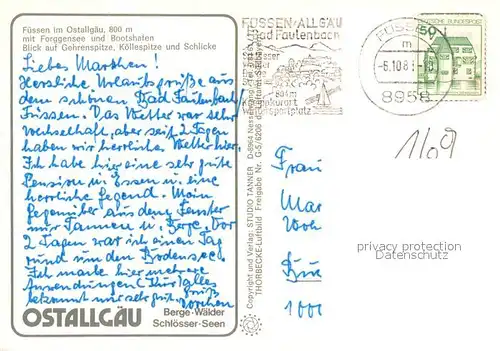 Füssen im Ostallgäu, 800 m
mit Forggensee und Bootshafen
Blick auf Gehrenspitze, Köllespitze und Schlicke
Liebes Marthen!
Herzliche Urlaubsgrüße aus
dem schönen Bad Faulenbach/
Füssen. Das Wetter war sehr
wechselhaft, aber seit 2 Tagen
haben wir herrliches Wetter hier.
Ich habe hier eine sehr gute
Pension u. Essen u. eine
herrliche Gegend. Mein
Gegenüber aus dem Fenster
nur Tannen u. Berge. Vor
2 Tagen war ich einen Tag
rund um den Bodensee.
Ich mache hier mehrere
Anwendungen (Kur) alles
bekommt mir sehr gut. Gruß
OSTALLGÄU
Berge·Wälder
Schlösser·Seen
Copyright und Verlag: STUDIO TANNER D-8964 Nesselwang
THORBECKE-Luftbild Freigabe Nr. G-5/6206
FÜSSEN·ALLGÄU
Bad Faulenbach
FÜSSEN
m
-6.10.8
8958
50
DEUTSCHE BUNDESPOST
1/09
Frau
Mar
1000
privacy protection
Datenschutz